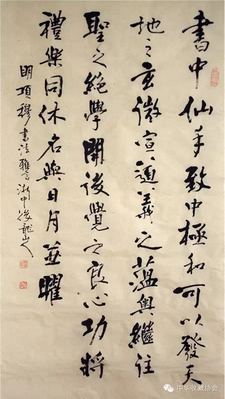 書中仙手致中極和可以發天
地之玄微宣道義之蘊奧繼往
聖之絕學開後覺之良心功將
禮樂同休名與日月並曜
明項穆書法雅言浙中後龍山人